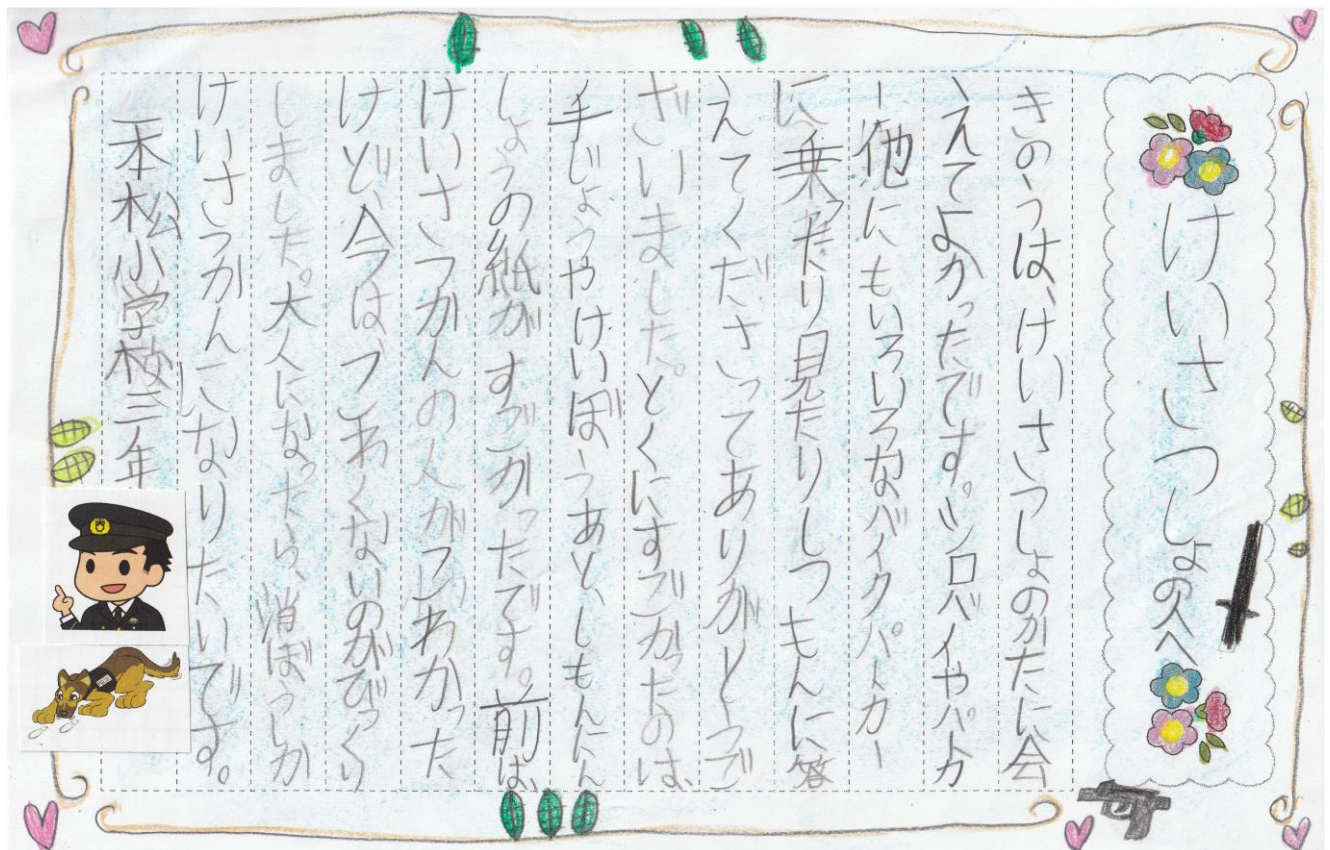 けいさつしょの人へ
きのうは、けいさつしょのかたに会
えてよかったです。シロバイやパトカ
ー他にもいろいろなバイクパトカー
に乗ったり見たりしつもんに答
えてくださってありがとうご
ざいました。とくにすごかったのは、
手じょうやけいぼうあと、しもんにん
しょうの紙がすごかったです。前は、
けいさつかんの人がこわかった
けど、今は、こわくないのがびっくり
しました。大人になったら、消ぼうしか
けいさつかんになりたいです。
一本松小学校三年